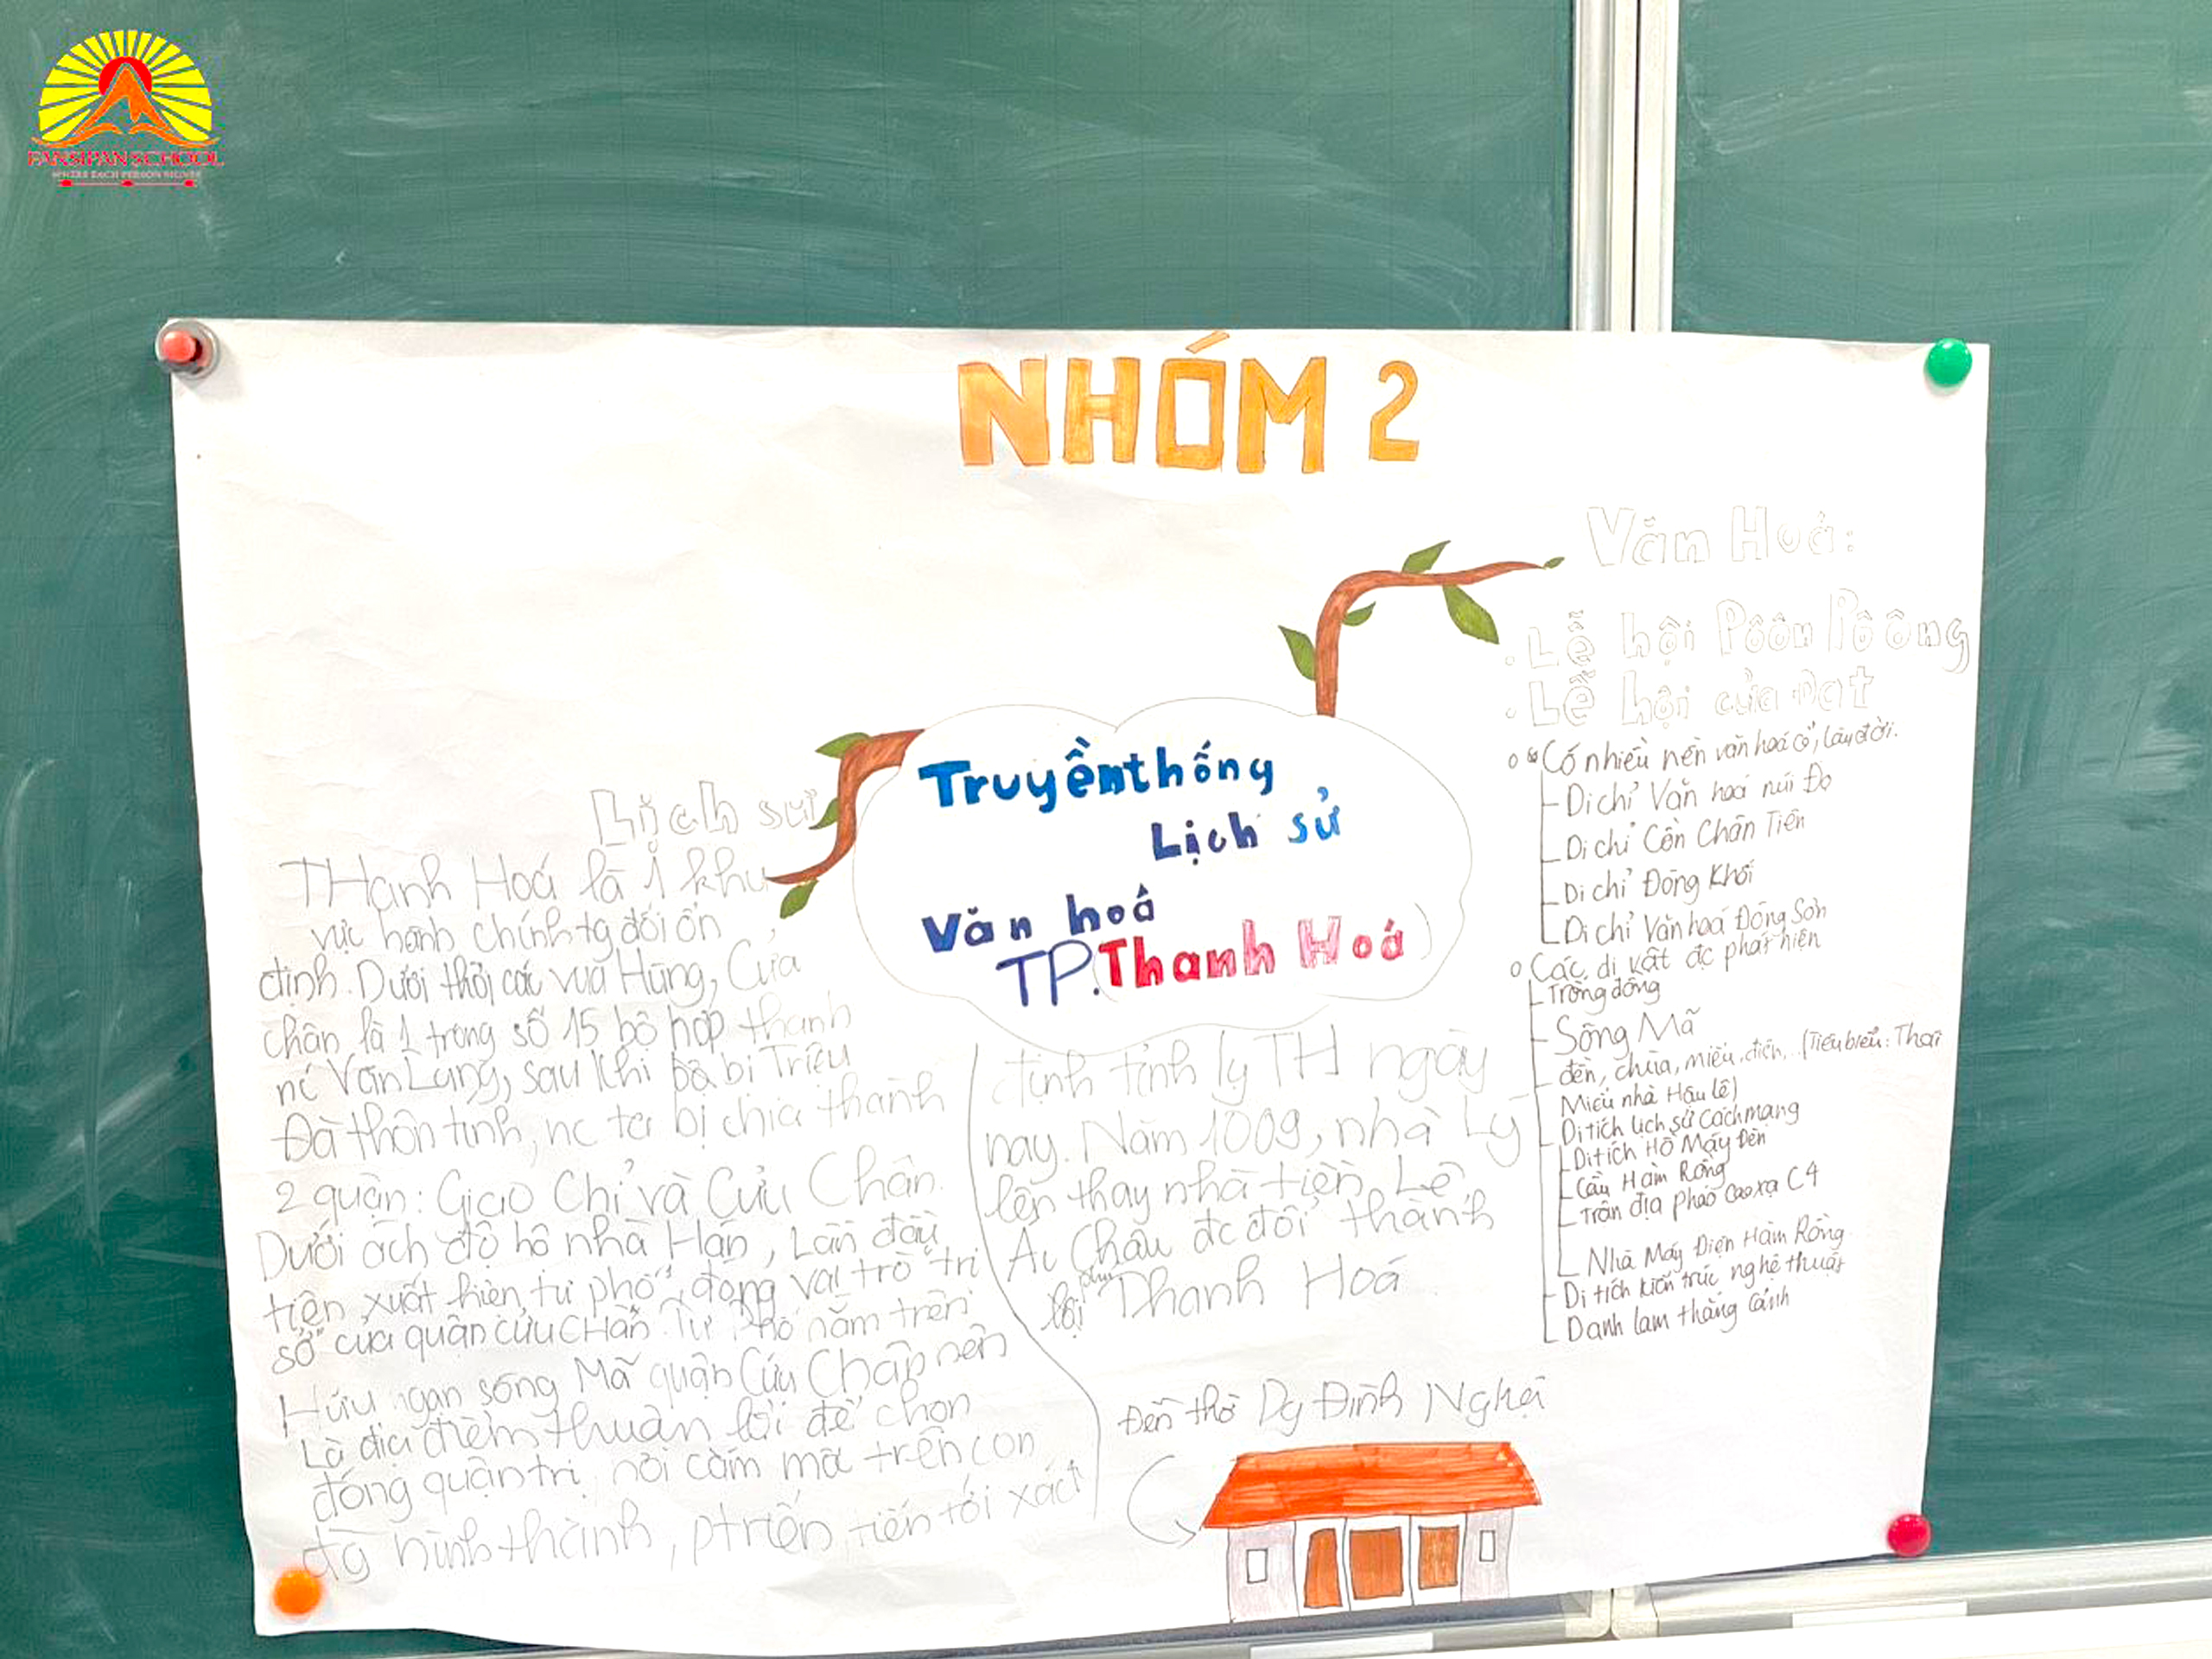 FANSIPAN SCHOOL
WHERE EACH PERSON SHINES
NHÓM 2
Truyền thống
Lịch sử
Văn hoá
TP. (Thanh Hoá)
Lịch sử
THanh Hoá là 1 khu
vực hành chính tg đối ổn
định. Dưới thời các vua Hùng, Cửa
chân là 1 trong số 15 bộ hợp thành
nc Văn Lang, sau khi bộ bị Triệu
Đà thôn tính, nc ta bị chia thành
2 quận: Giao Chỉ và Cửu Chân.
Dưới ách đô hộ nhà Hán, Lần đầu
tiên xuất hiện tư phố, đóng vai trò trị
sở của quận cửu CHân. Tư Phố nằm trên
Hữu ngạn sông Mã quận Cửu Chân nên
Là địa điểm thuận lợi để chọn
đóng quận trị, nơi cắm mã trên con
đg hình thành, ptriển tiến tới xác
định tỉnh lỵ TH ngày
nay. Năm 1009, nhà Lý
lên thay nhà tiền Lê
Ái Châu đc đổi thành
lại phủ Thanh Hoá
Đền thờ Dg Đình Nghệ
Văn Hoá:
. Lễ hội Pôôn Pôông
. Lễ hội cửa Đạt
Có nhiều nền văn hoá cổ, lâu đời.
Di chỉ Văn hoá núi Đọ
Di chỉ Cồn Chân Tiên
Di chỉ Đông Khối
Di chỉ Văn hoá Đông Sơn
Các di vật đc phát hiện
Trống đồng
Sông Mã
đền, chùa, miếu, điện,...(Tiêu biểu: Thái
Miếu nhà Hậu lê)
Di tích lịch sử cách mạng
Di tích Hồ Máy Đèn
Cầu Hàm Rồng
Trận địa pháo cao xạ C4
Nhà Máy Điện Hàm Rồng
Di tích kiến trúc nghệ thuật
Danh lam thắng cảnh